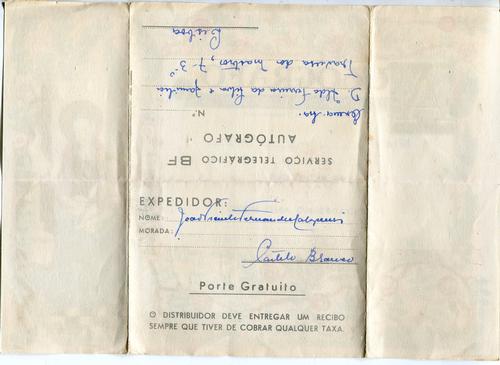 SERVIÇO TELEGRÁFICO BF
AUTÓGRAFO
Nº
D. Ilda Ferreira da Silva e família
Travessa do Mastro, 7-3º
Lisboa
EXPEDIDOR:
NOME: João Vicente Fernandes
MORADA:
Castelo Branco
Porte Gratuito
O DISTRIBUIDOR DEVE ENTREGAR UM RECIBO
SEMPRE QUE TIVER DE COBRAR QUALQUER TAXA.